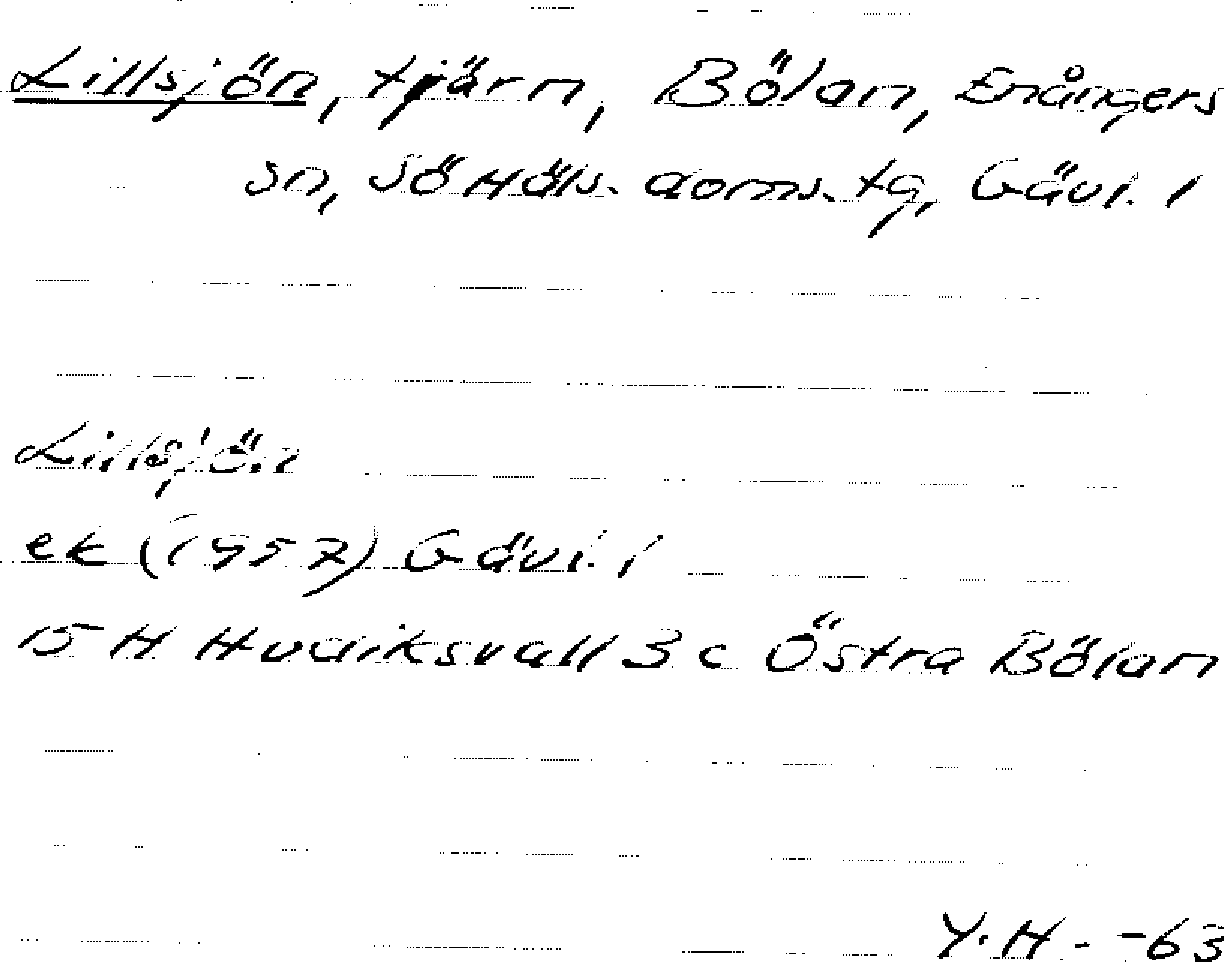 Lillsjön, tjärn, Bölan, Enångers
sn, Sö Häls. doms. tg, Gävl. l
Lillsjön
ek (1957) Gävl. l
15 H Hudiksvall 3 c Östra Bölan
Y.H. -63